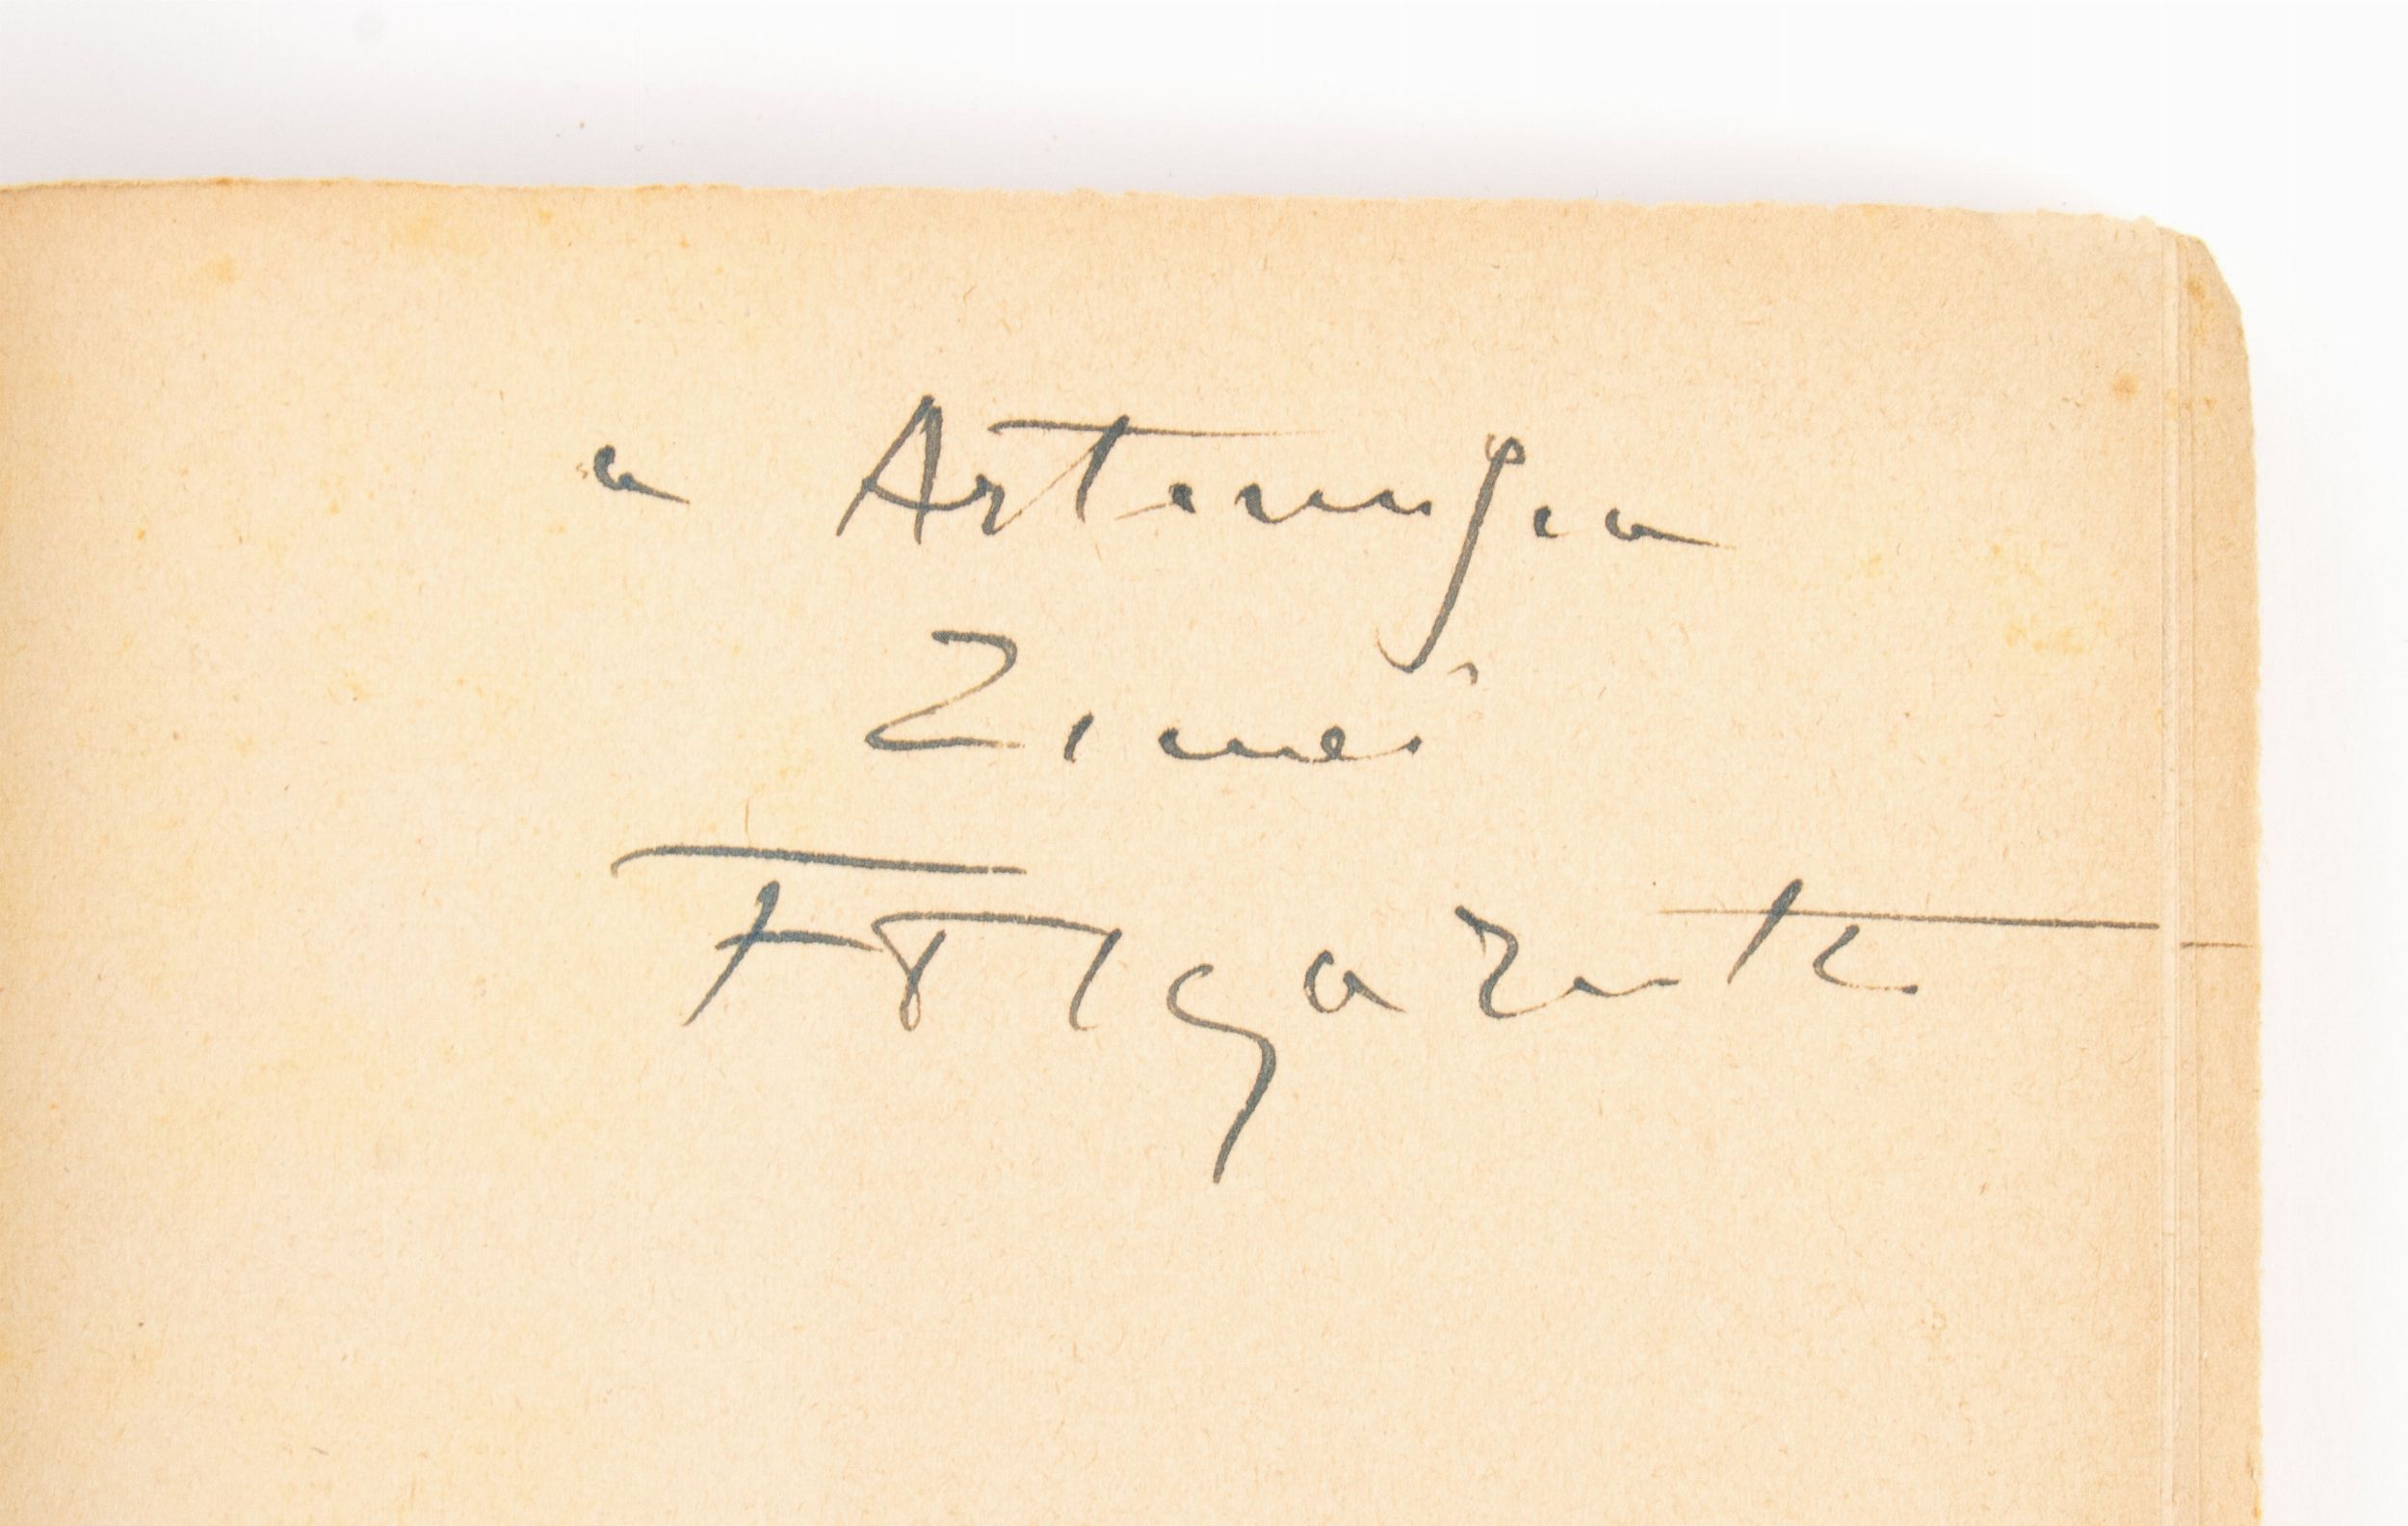 a Artemisia
Zimei
FT Marinetti